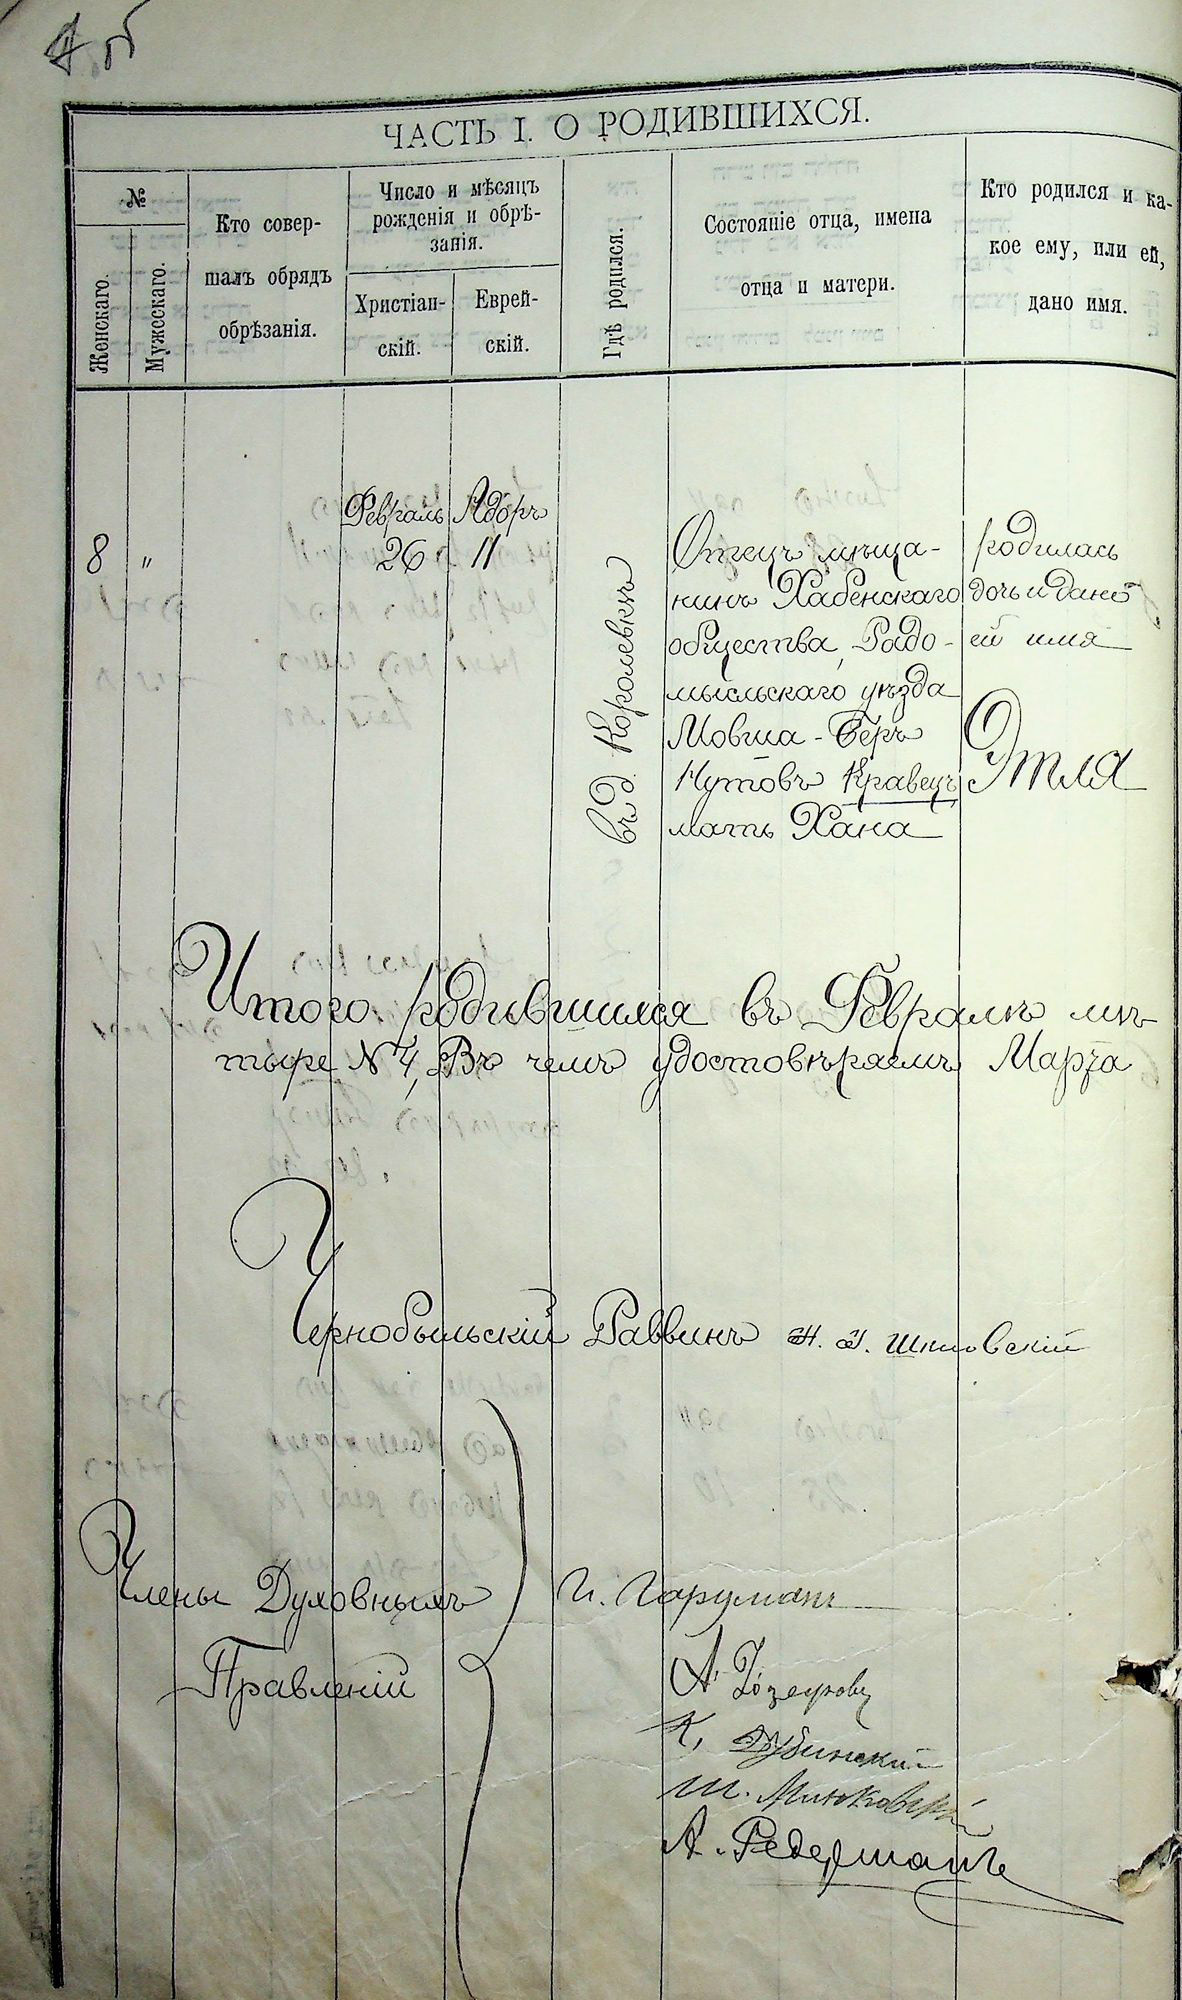 ЧАСТЬ I. О РОДИВШИХСЯ.
№
Женскаго.
Мужескаго.
Кто совер-
шалъ обрядъ
обрѣзанія.
Число и мѣсяцъ
рожденія и обрѣ-
занія.
Христіан-
скій.
Еврей-
скій.
Гдѣ родился.
Состояніе отца, имена
отца и матери.
Кто родился и ка-
кое ему, или ей,
дано имя.
8 "
Февраль
26
Адаръ
11
въ д. Королевкѣ
Отецъ мѣща-
нинъ Хабенскаго
общества, Радо-
мысльскаго уѣзда
Мовша-Беръ
Нутовъ Кравецъ
мать Хана
родилась
дочь и дано
ей имя
Этля
Итого родившихся въ Февралѣ
№ 4, Въ чемъ удостовѣряемъ Марта
Чернобыльскій Раввинъ
Члены Духовныхъ
Правленій
К. Дубинскій
Ш. Минковскій
А. Федерманъ